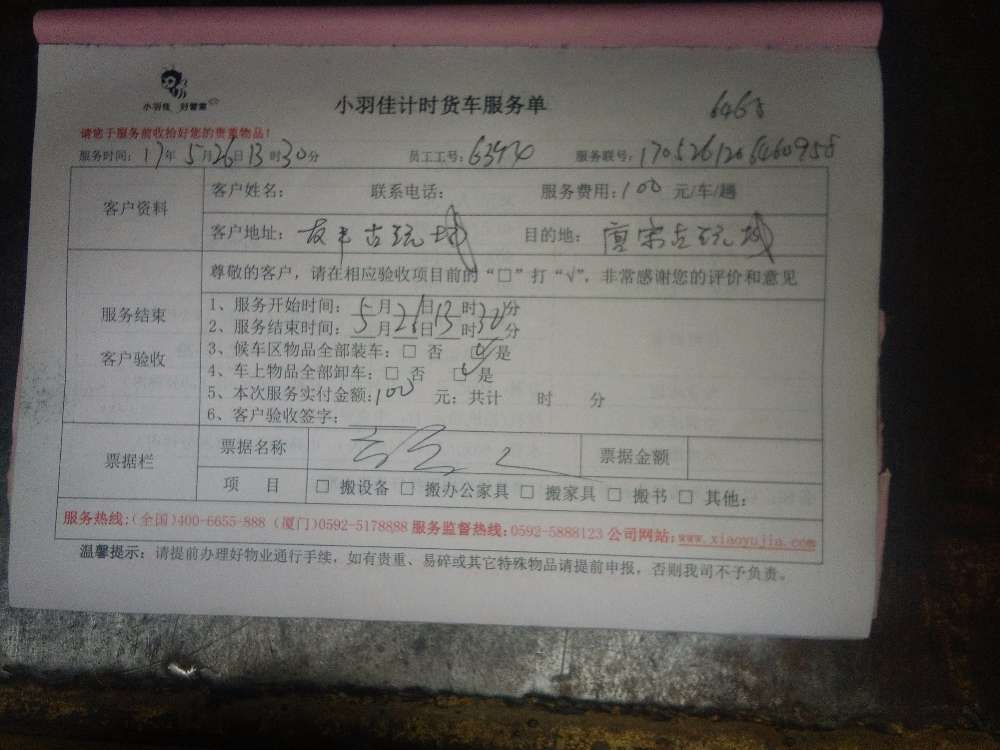 小羽佳 好管家
小羽佳计时货车服务单
646
请您于服务前收拾好您的贵重物品！
服务时间：17年5月26日13时30分 员工工号：6394 服务联号：170526126460958
客户资料
客户姓名： 联系电话： 服务费用：100 元/车/趟
客户地址： 古玩城 目的地： 唐宋古玩城
尊敬的客户，请在相应验收项目前的“□”打“√”，非常感谢您的评价和意见
服务结束
客户验收
1、服务开始时间：5月26日13时30分
2、服务结束时间：5月26日13时30分
3、候车区物品全部装车：□ 否 ☑ 是
4、车上物品全部卸车：□ 否 ☑ 是
5、本次服务实付金额：100 元；共计 时 分
6、客户验收签字：
票据栏
票据名称 票据金额
项 目 □ 搬设备 □ 搬办公家具 □ 搬家具 □ 搬书 □ 其他：
服务热线：(全国)400-6655-888 (厦门)0592-5178888 服务监督热线：0592-5888123 公司网站：www.xiaoyujia.com
温馨提示：请提前办理好物业通行手续，如有贵重、易碎或其它特殊物品请提前申报，否则我司不予负责。